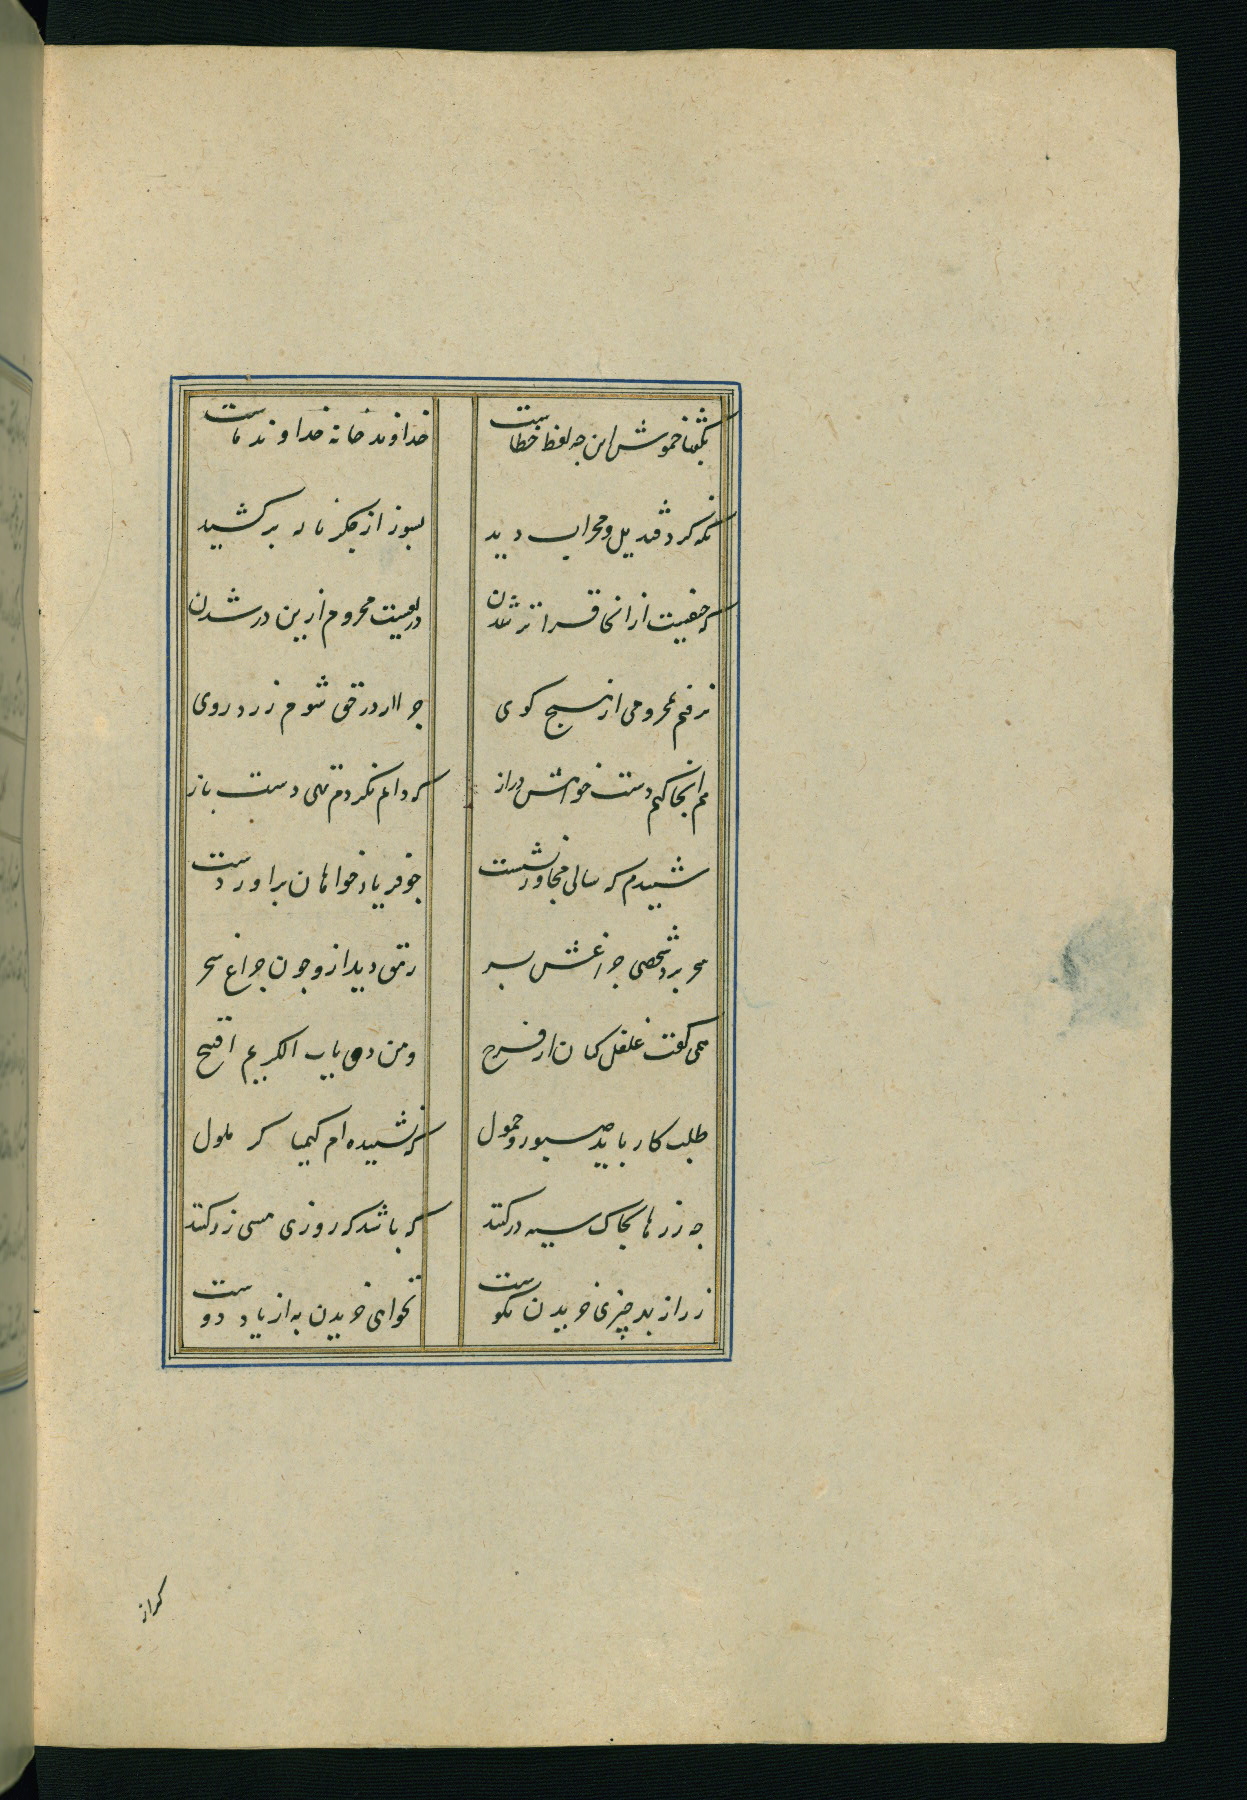 بگفتا خموش این چه لفظ خطاست خداوند خانه خداوند ماست
نگه کرد قندیل و محراب دید بسوز از جگر ناله برکشید
که حیفیت از انجا فراتر شدن دریغیت محروم ازین در شدن
نرفتم بمحرومی از هیچ کوی چرا از در حق شوم زرد روی
هم انجا کنم دست خواهش دراز که دانم نکردم تهی دست باز
شنیدم که سالی مجاور نشست چو فریاد خواهان براورد دست
سحر برد شخصی چراغش بسر رمق دید ازو چون چراغ سحر
همی گفت غلغل کنان از فرح ومن دق باب الکریم افتح
طلب کار باید صبور و حمول که نشنیده ام کیمیا کر ملول
چه زرها بخاک سیه درکنند که باشد که روزی مسی زر کنند
زر از بهر چیزی خریدن نکوست نخواهی خریدن به از یاد دوست
کراز